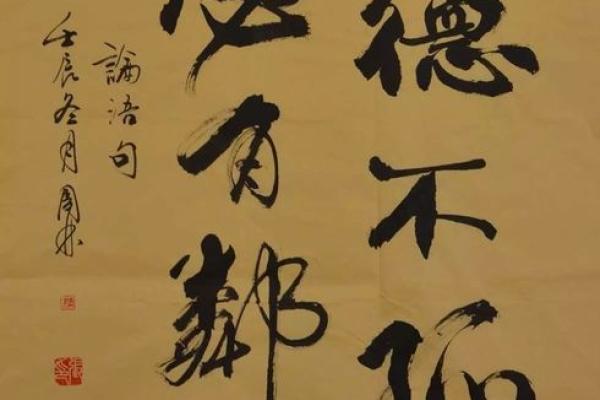 德不孤
必有鄰
論語句
壬辰冬月周林